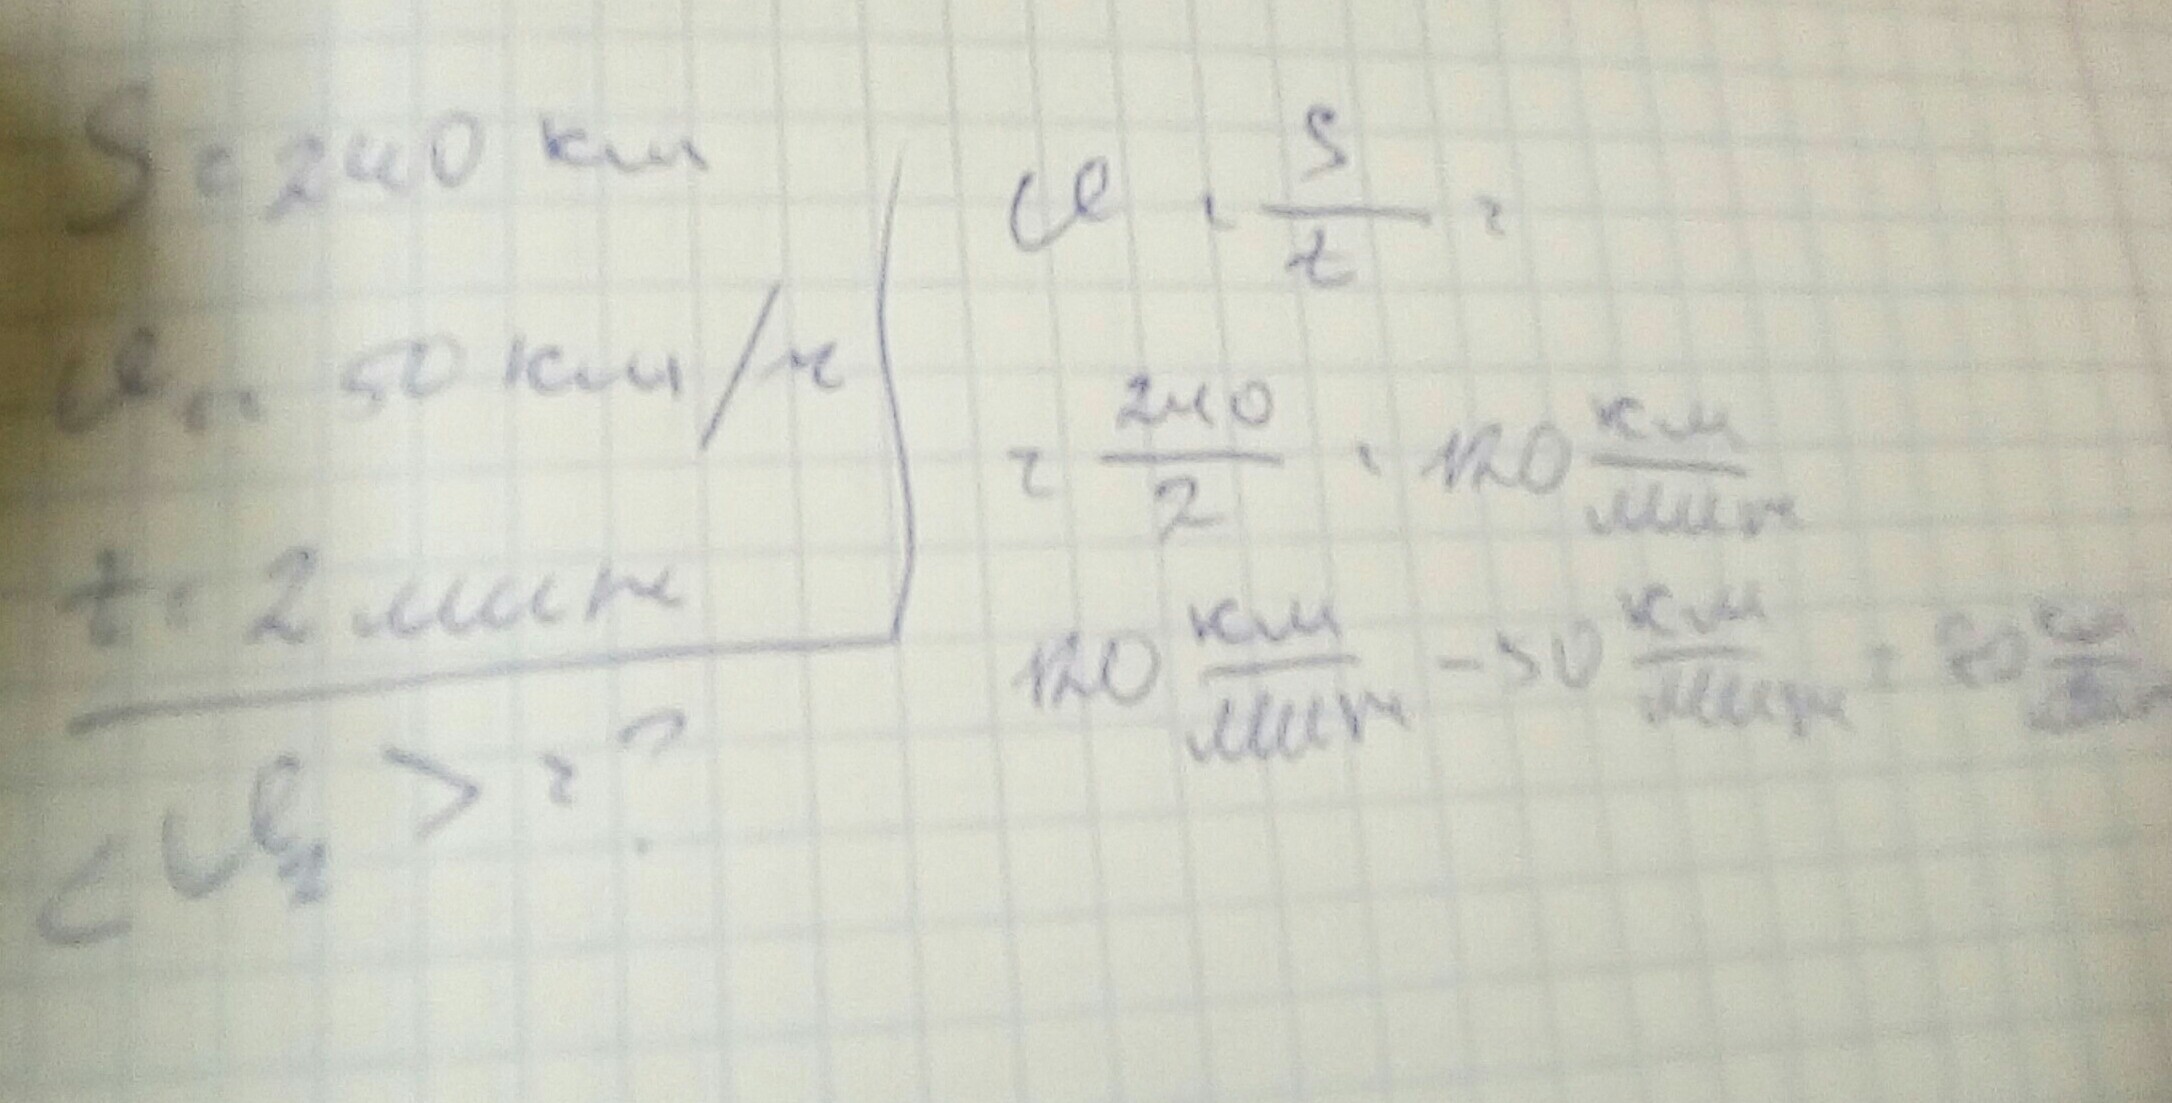 S = 240 км
υ₁ = 50 км/ч
t = 2 мин
<υ₂> = ?
υ = S/t =
= 240/2 = 120 км/мин
120 км/мин - 50 км/мин = 70 км/мин